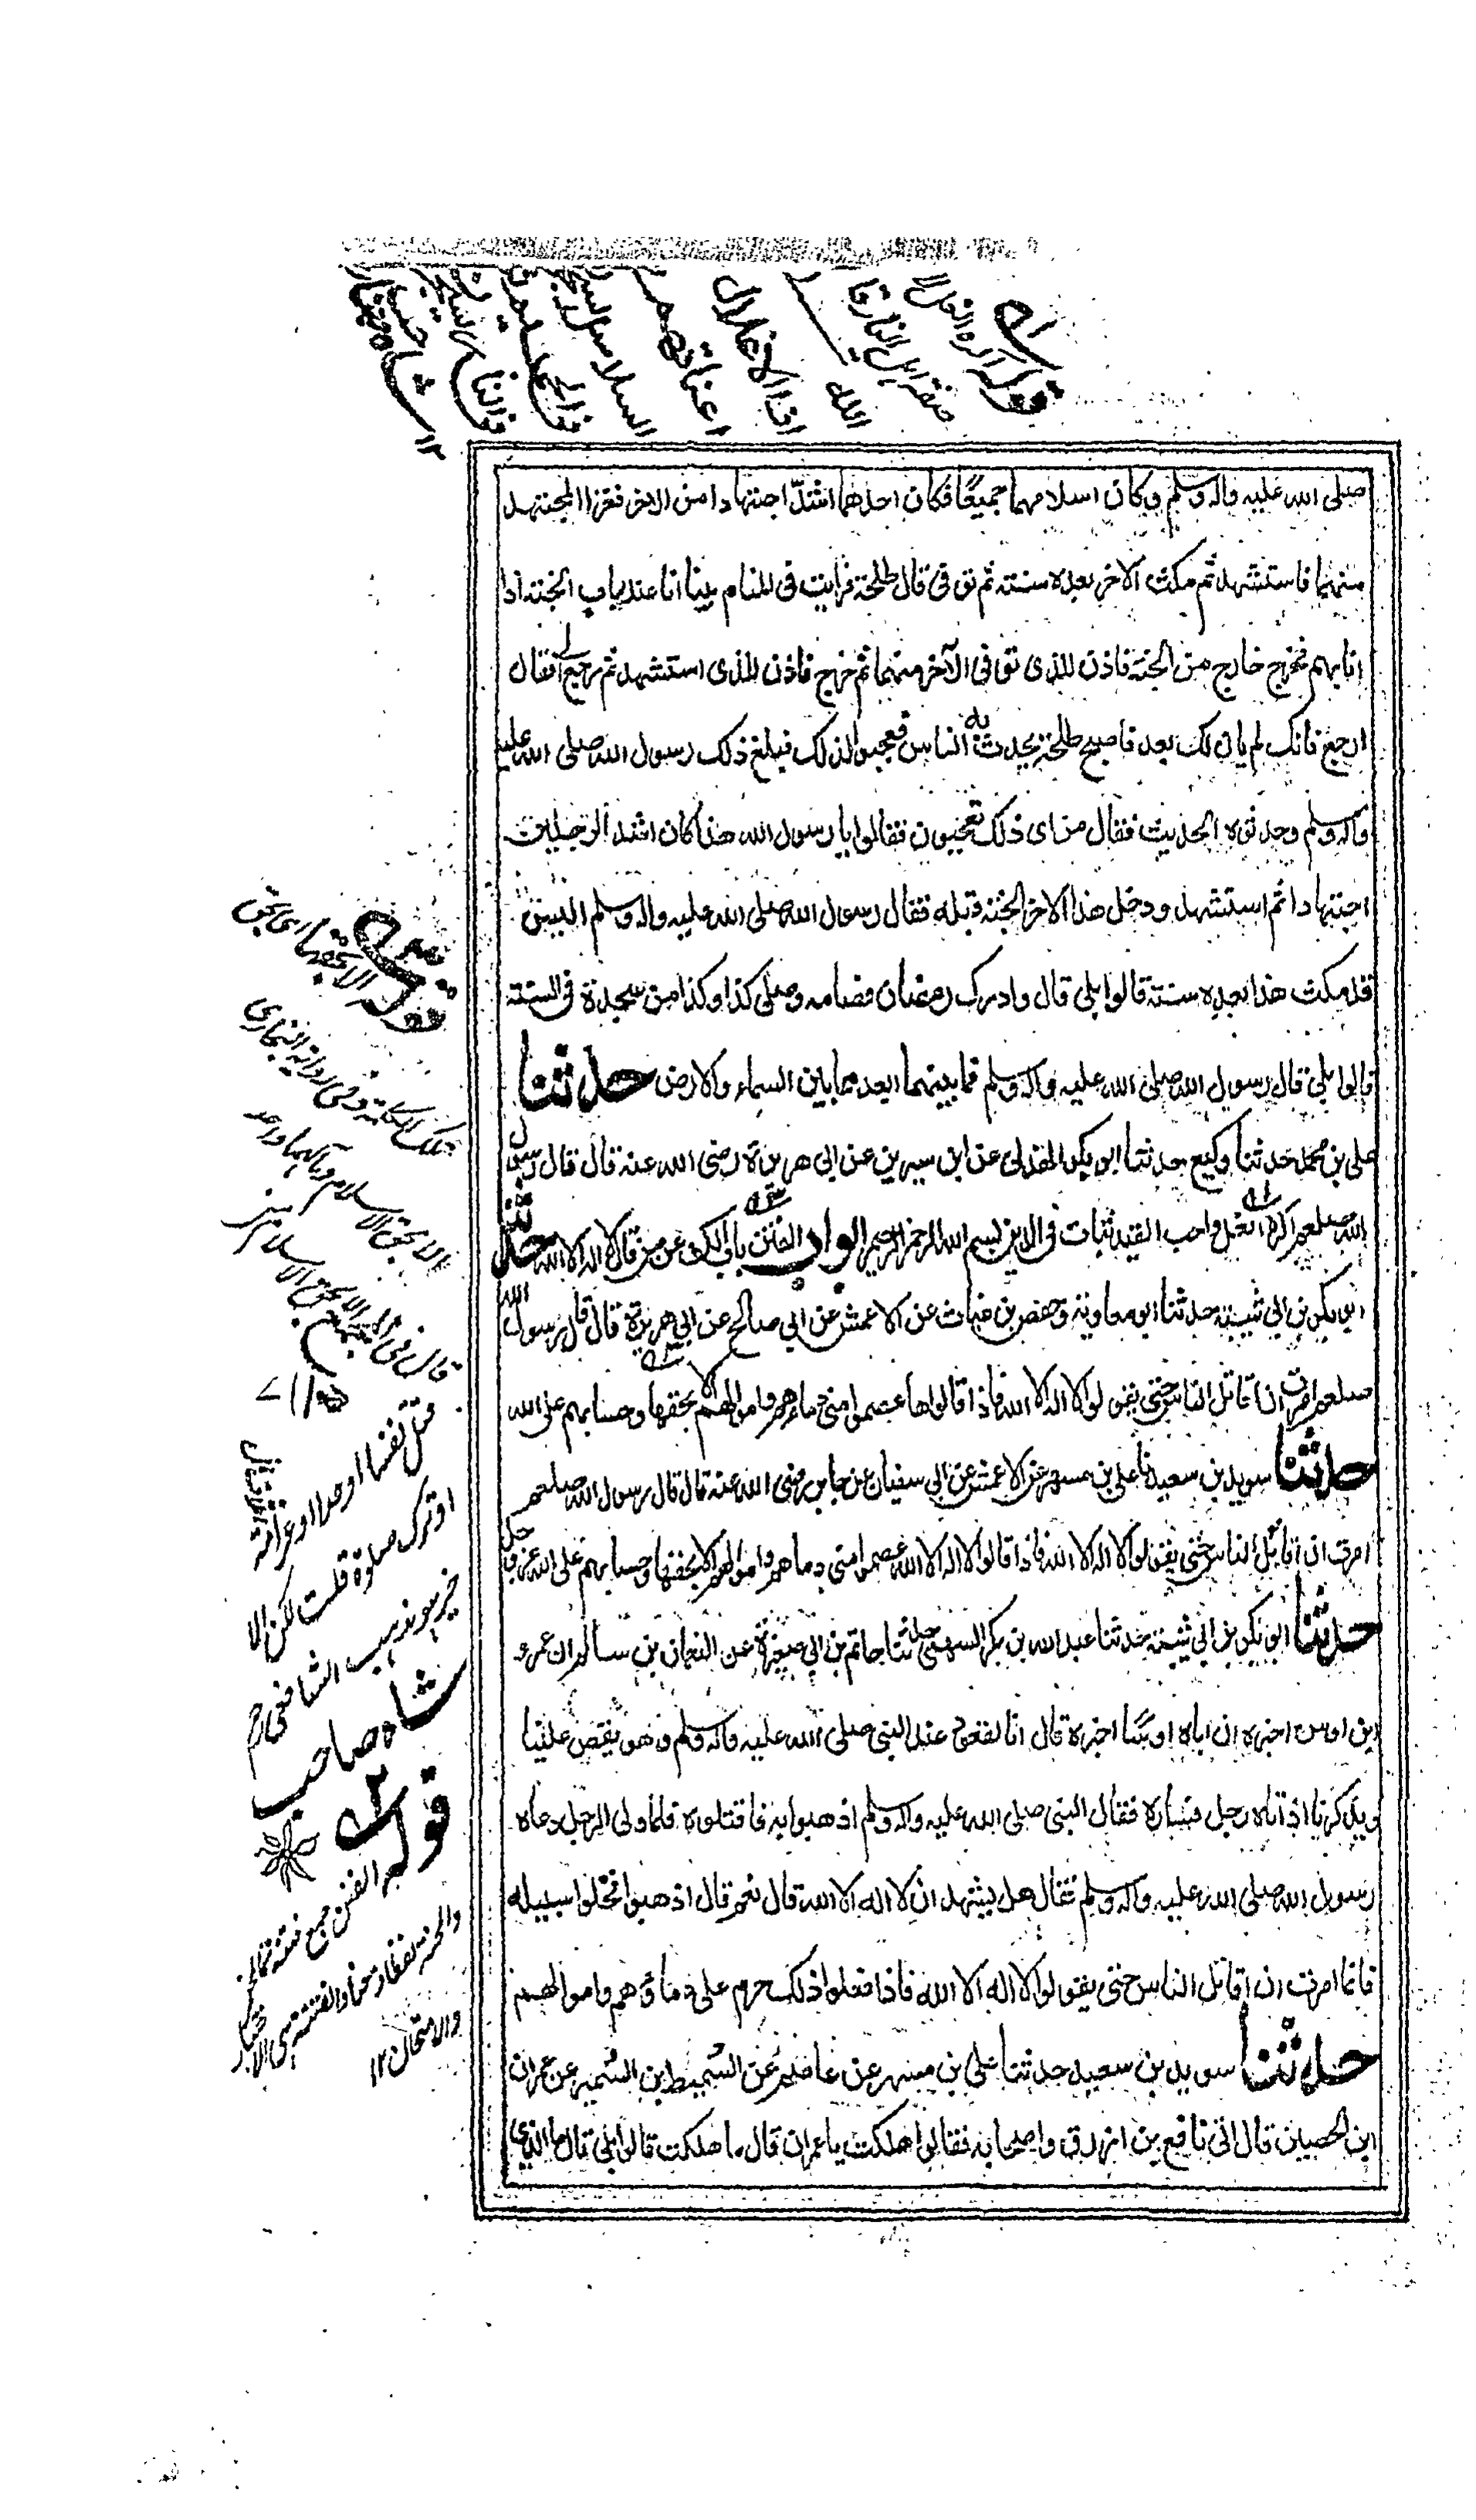 صلى الله عليه واله وسلم وكان اسلامهما جميعًا فكان احدهما اشدّ اجتهادا من الاخر فغزا المجتهد
منهما فاستشهد ثم مكث الاخر بعده سنة ثم توفى قال طلحة فرايت فى المنام بينا انا عند باب الجنة اذا
انا بهم فخرج خارج من الجنة فاذن للذى توفى الآخر منهما ثم خرج فاذن للذى استشهد ثم رجع الى فقال
ارجع فانك لم يان لك بعد فاصبح طلحة يحدث به الناس فعجبوا لذلك فبلغ ذلك رسول الله صلى الله عليه
واله وسلم وحدثوه الحديث فقال من اى ذلك تعجبون فقالوا يا رسول الله هذا كان اشد الرجلين
اجتهادا ثم استشهد ودخل هذا الاخر الجنة قبله فقال رسول الله صلى الله عليه واله وسلم اليس
قد مكث هذا بعده سنة قالوا بلى قال وادرك رمضان فصامه وصلى كذا وكذا من سجدة فى السنة
قالوا بلى قال رسول الله صلى الله عليه واله وسلم فما بينهما ابعد مما بين السماء والارض حدثنا
على بن محمد حدثنا وكيع حدثنا ابو بكر الهذلى عن ابن سيرين عن ابى هريرة رضى الله عنه قال قال رسول
الله صلعم اكره الغل واحب القيد ثبات فى الدين بسم الله الرحمن الرحيم ابواب الفتن باب الكف عن من قال لا اله الا الله حدثنا
ابو بكر بن ابى شيبة حدثنا ابو معاوية وحفص بن غياث عن الاعمش عن ابى صالح عن ابى هريرة قال قال رسول الله
صلعم امرت ان اقاتل الناس حتى يقولوا لا اله الا الله فاذا قالوها عصموا منى دماءهم واموالهم الا بحقها وحسابهم على الله
حدثنا سويد بن سعيد نا على بن مسهر عن الاعمش عن ابى سفيان عن جابر رضى الله عنه قال قال رسول الله صلعم
امرت ان اقاتل الناس حتى يقولوا لا اله الا الله فاذا قالوا لا اله الا الله عصموا منى دماءهم واموالهم الا بحقها وحسابهم على الله عز وجل
حدثنا ابو بكر بن ابى شيبة حدثنا عبد الله بن بكر السهمى حدثنا حاتم بن ابى صغيرة عن النعمان بن سالم ان عمرو
ابن اوس اخبره ان اباه اوسًا اخبره قال انا لقعود عند النبى صلى الله عليه واله وسلم وهو يقص علينا
ويذكرنا اذ اتاه رجل فساره فقال النبى صلى الله عليه واله وسلم اذهبوا به فاقتلوه فلما ولى الرجل دعاه
رسول الله صلى الله عليه واله وسلم فقال هل يشهد ان لا اله الا الله قال نعم قال اذهبوا فخلوا سبيله
فانما امرت ان اقاتل الناس حتى يقولوا لا اله الا الله فاذا فعلوا ذلك حرم على دماؤهم واموالهم
حدثنا سويد بن سعيد حدثنا على بن مسهر عن عاصم عن السميط ابن السمير عن عمران
ابن الحصين قال اتى نافع بن ازرق واصحابه فقالوا هلكت يا عمران قال ما هلكت قالوا بلى قال ما الذى
قوله الا بحقها اى بحق
تلك الكلمة وفى رواية البخارى
الا بحق الاسلام ومآلهما واحد
قتل نفسا او حدا او غرامة
او ترك صلوة قلت لكن الا
خير هو مذهب الشافعى رح
شاه صاحب
قوله ٢ الفتن جمع فتنة كالمحن
والمحنة لفظا ومعنى والفتنة هى الاختبار
والامتحان ١٢